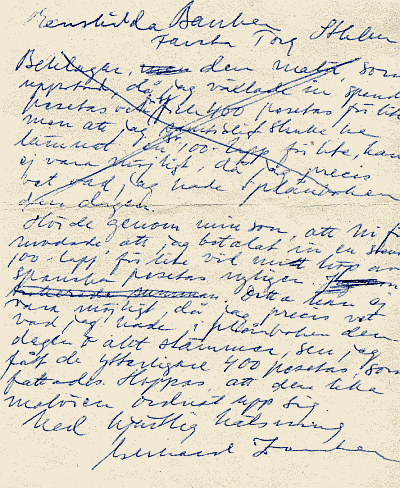 Enskilda Banken
Farsta Torg Sthlm
Beklagar, den malör, som
uppstod, då jag växlade in spanska
pesetas och fick 400 pesetas för lite
men att jag skulle ha
lämnat en 100-lapp för lite, kan
ej vara möjligt, då jag precis
vet vad jag hade i plånboken
den dagen.
Hörde genom min son, att ni för-
modade att jag betalat in en
100-lapp för lite vid mitt köp av
spanska pesetas nyligen.
Detta kan ej
vara möjligt, då jag precis vet
vad jag hade i plånboken den
dagen o allt stämmer, sen jag
fått de ytterligare 400 pesetas, som
fattades. Hoppas, att den lilla
malören ordnat upp sig.
Med hjärtlig hälsning
Gerhard